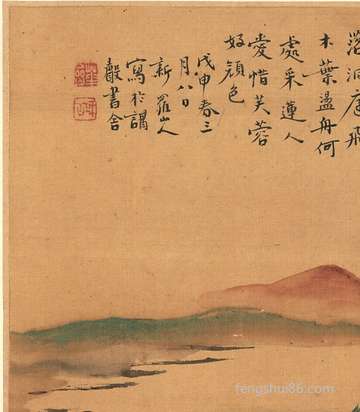 落洞庭飛
木葉盪舟何
處采蓮人
愛惜芙蓉
好顏色
戊申春三
月八日
新羅山人
寫於
書舍
fengshui86.com